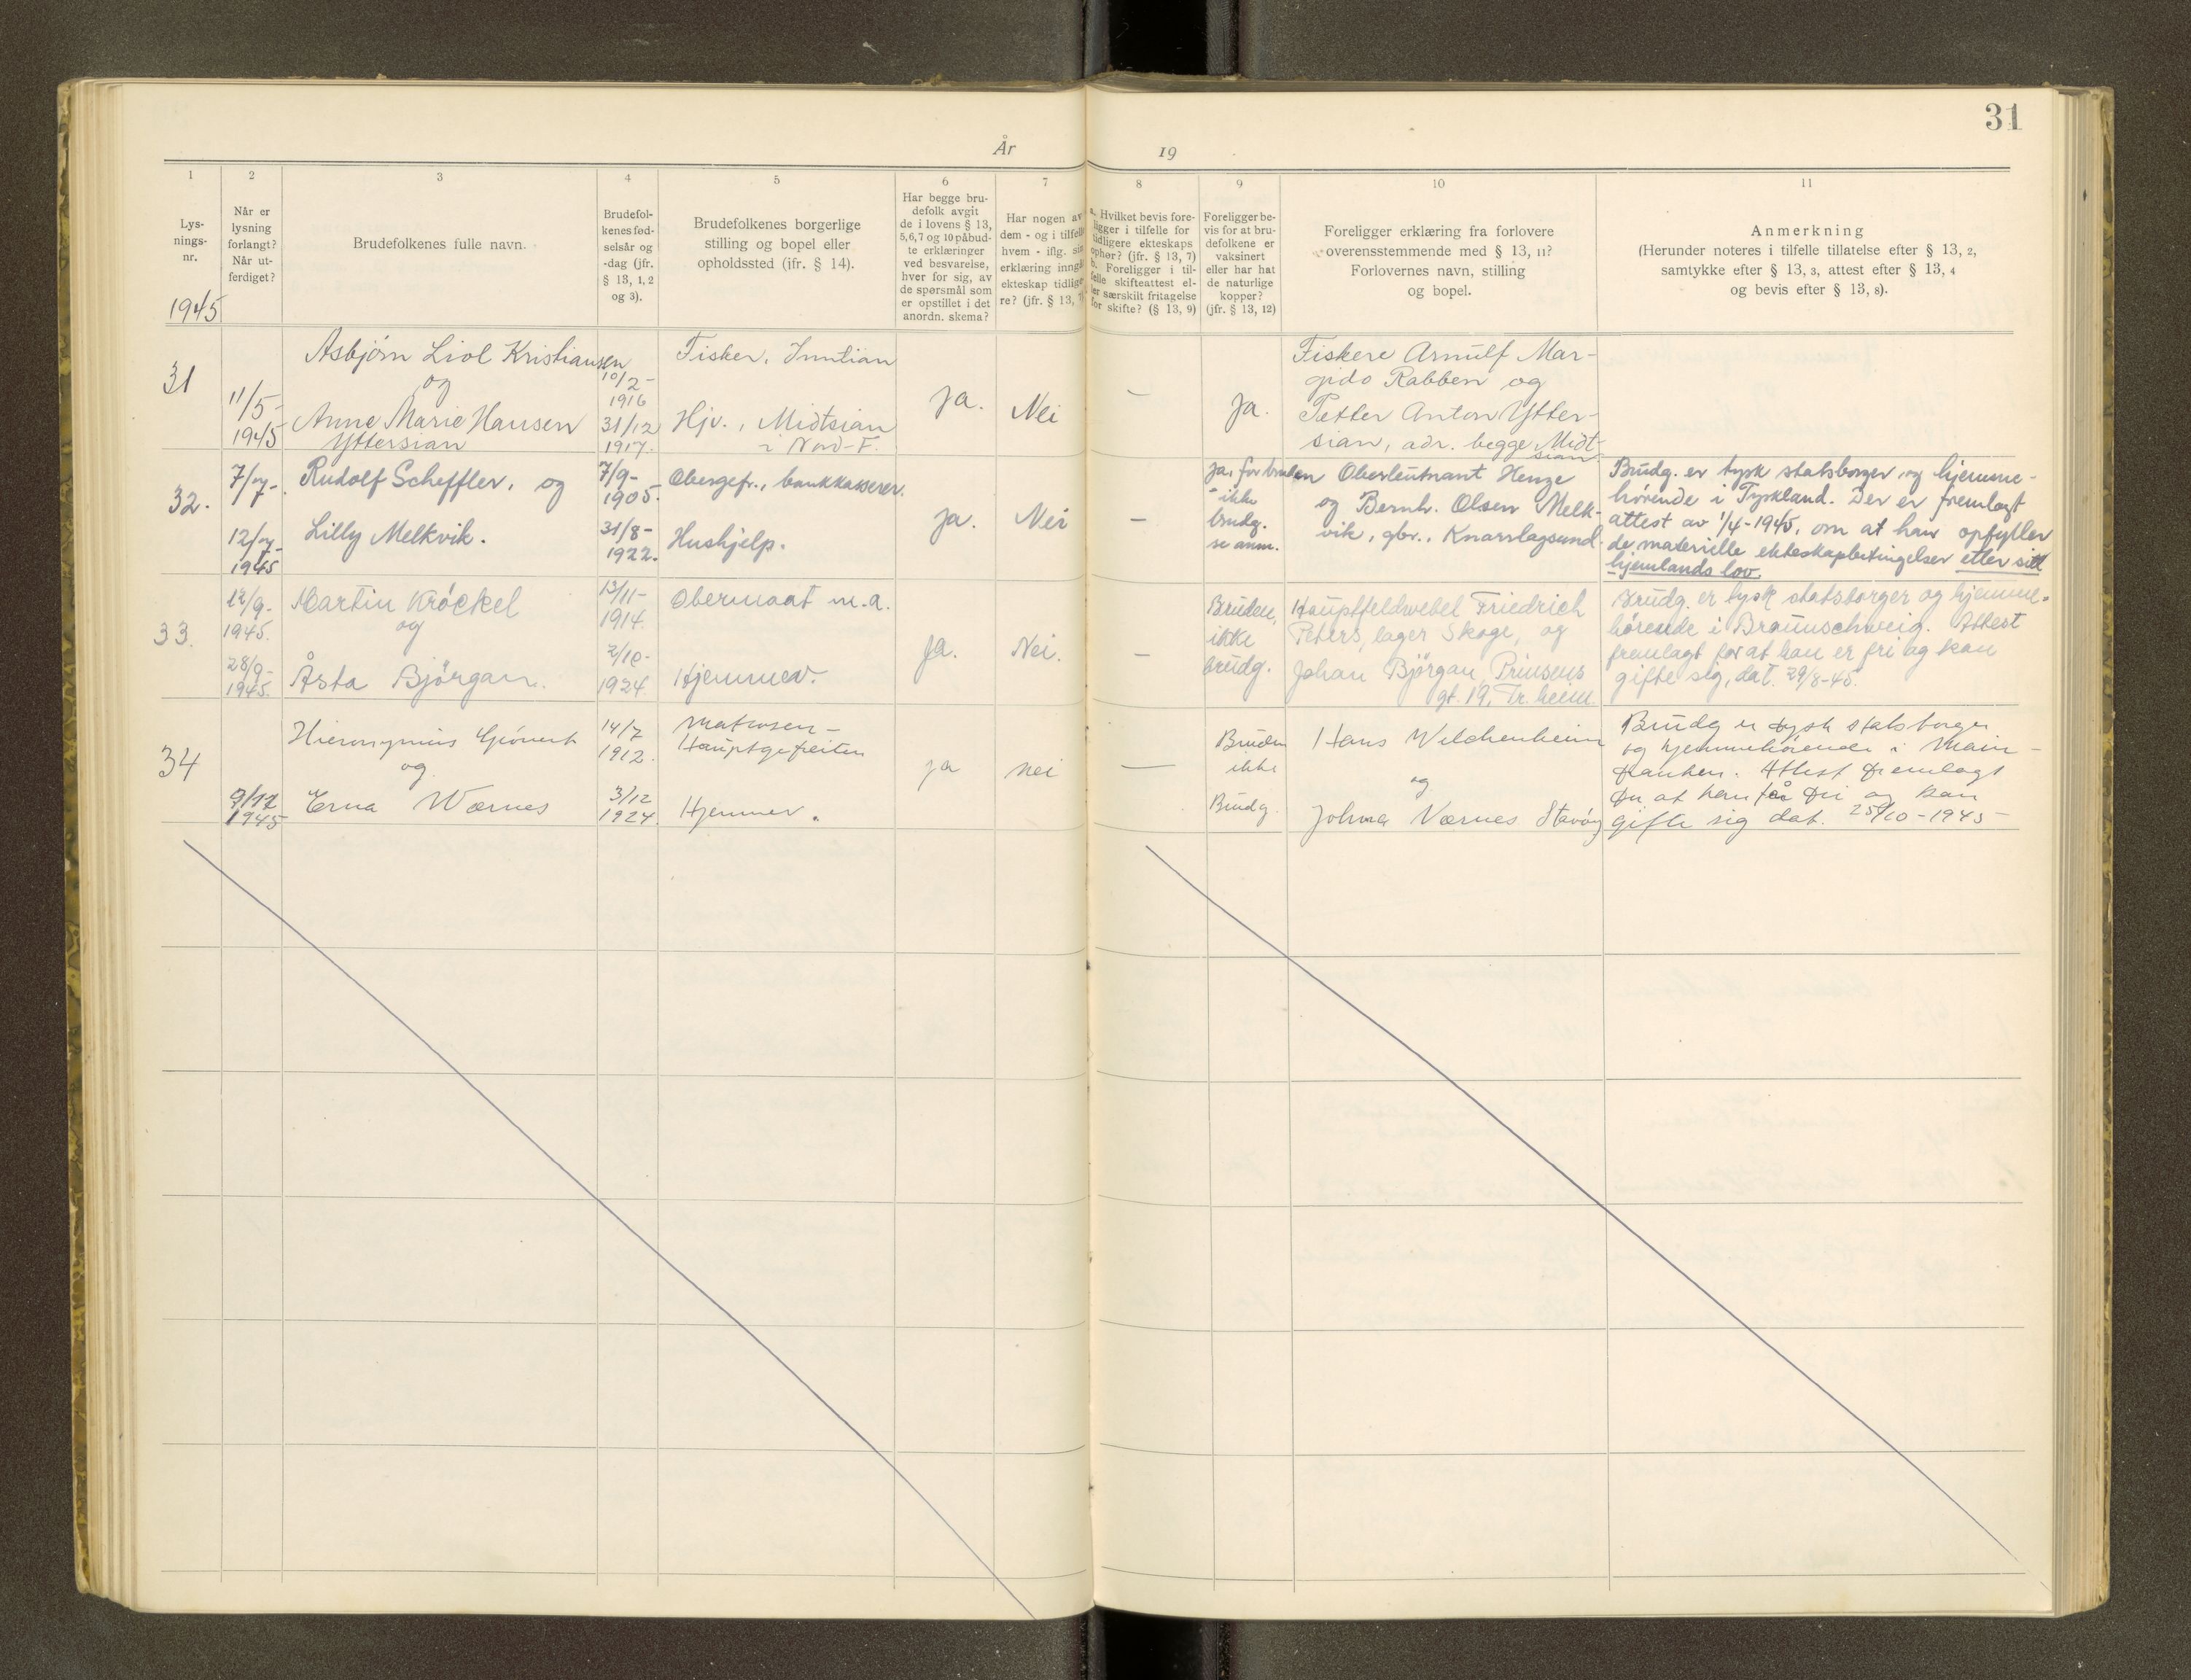 31
År 19
1
2
3
4
5
6
7
8
9
10
11
Lys-
nings-
nr.
1945
Når er
lysning
forlangt?
Når ut-
ferdiget?
Brudefolkenes fulle navn.
Brudefol-
kenes fød-
selsår og
-dag (jfr.
§ 13, 1, 2
og 3).
Brudefolkenes borgerlige
stilling og bopel eller
opholdssted (jfr. § 14).
Har begge bru-
defolk avgit
de i lovens § 13,
5,6,7 og 10 påbud-
te erklæringer
ved besvarelse,
hver for sig, av
de spørsmål som
er opstillet i det
anordn. skema?
Har nogen av
dem - og i tilfelle
hvem - iflg. sin
erklæring inngå
ekteskap tidlige
re? (jfr. § 13, 7)
a. Hvilket bevis fore-
ligger i tilfelle for
tidligere ekteskaps
ophør? (jfr. § 13, 7)
b. Foreligger i til-
felle skifteattest el-
ler særskilt fritagelse
for skifte? (§ 13, 9)
Foreligger be-
vis for at bru-
defolkene er
vaksinert
eller har hat
de naturlige
kopper?
(jfr. § 13, 12)
Foreligger erklæring fra forlovere
overensstemmende med § 13, 11?
Forlovernes navn, stilling
og bopel.
Anmerkning
(Herunder noteres i tilfelle tillatelse efter § 13, 2,
samtykke efter § 13, 3, attest efter § 13, 4
og bevis efter § 13, 8).
31
11/5-
1945
Asbjørn Liol Kristiansen
og
Anne Marie Hansen
Yttersian
10/2-
1916
31/12
1917.
Fisker, Inntian
Hjv., Midtsian
i Nord-F.
Ja.
Nei
-
Ja.
Fiskere Arnulf Mar-
gido Rabben og
Petter Anton Ytter-
sian, adr. begge Midt-
sian
32.
7/7-
12/7-
1945
Rudolf Scheffler, og
Lilly Melkvik.
7/9-
1905.
31/8-
1922.
Obergefr., bankkasserer.
Hushjelp.
Ja.
Nei
-
Ja, for bruden
" ikke
brudg.
se anm.
Oberleutnant Henze
og Bernh. Olsen Melk-
vik, gbr., Knarrlagsund.
Brudg. er tysk statsborger og hjemme-
hørende i Tyskland. Der er fremlagt
attest av 1/4-1945, om at han opfyller
de materielle ekteskapbetingelser etter sitt
hjemlands lov.
33.
12/9-
1945.
28/9-
1945.
Martin Krøckel
og
Åsta Bjørgan.
13/11-
1914.
2/10-
1924.
Obermaat m.a.
Hjemmev.
Ja.
Nei.
-
Bruden,
ikke
brudg.
Hauptfeldwebel Friedrich
Peters, lager Skage, og
Johan Bjørgan, Prinsens
gt. 19, Tr.heim.
Brudg. er tysk statsborger og hjemme-
hørende i Braunschweig. Attest
fremlagt for at han er fri og kan
gifte sig, dat. 29/8-45.
34
9/12
1945
Hieronymus
og
Erna Wærnes
14/7
1912.
3/12
1924.
Matrosen-
Hauptgefreiten
Hjemmev.
ja
nei
-
Bruden
ikke
Brudg.
Hans
og
Johna Værnes
Brudg er tysk statsborger
og hjemmehørende i Main-
franken. Attest fremlagt
at han fri og kan
gifte sig dat. 25/10-1945-